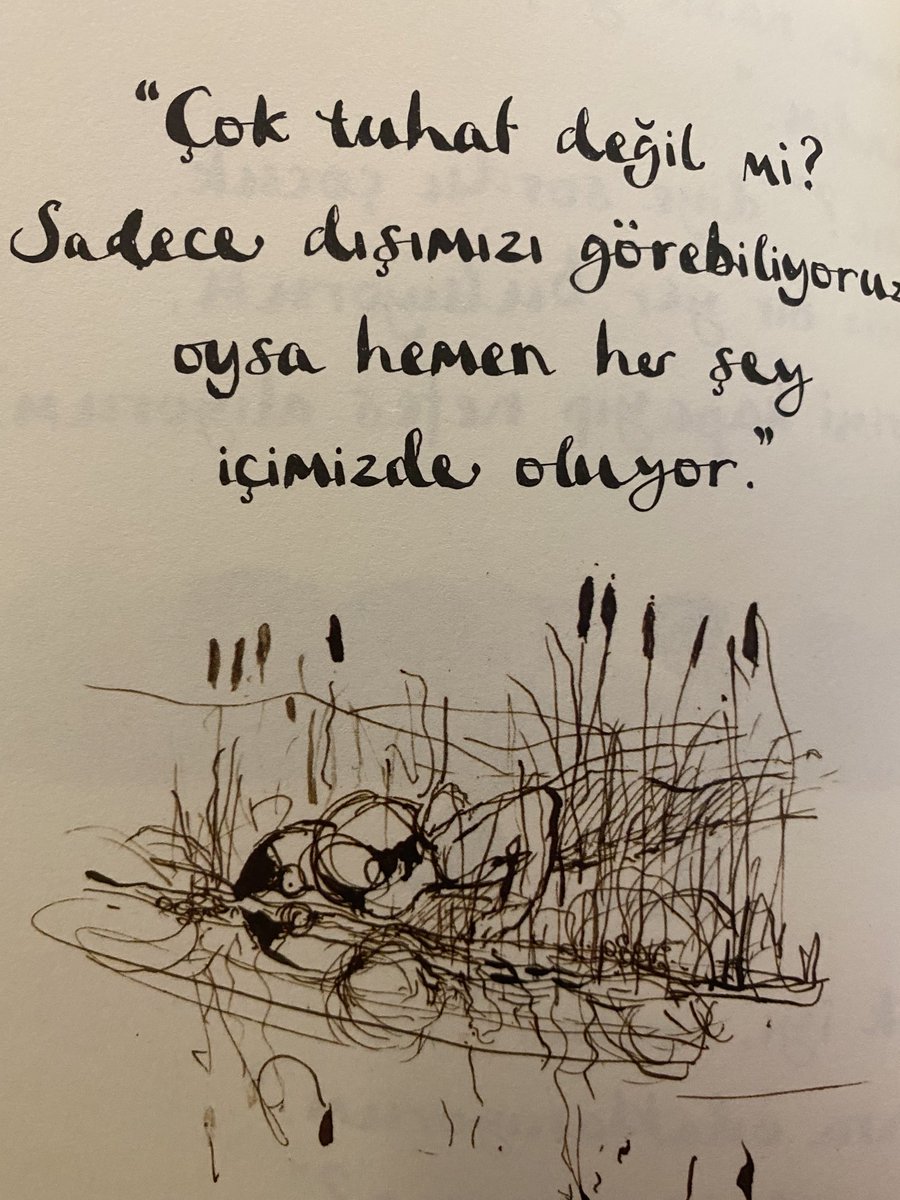 “Çok tuhaf değil mi?
Sadece dışımızı görebiliyoruz
oysa hemen her şey
içimizde oluyor.”